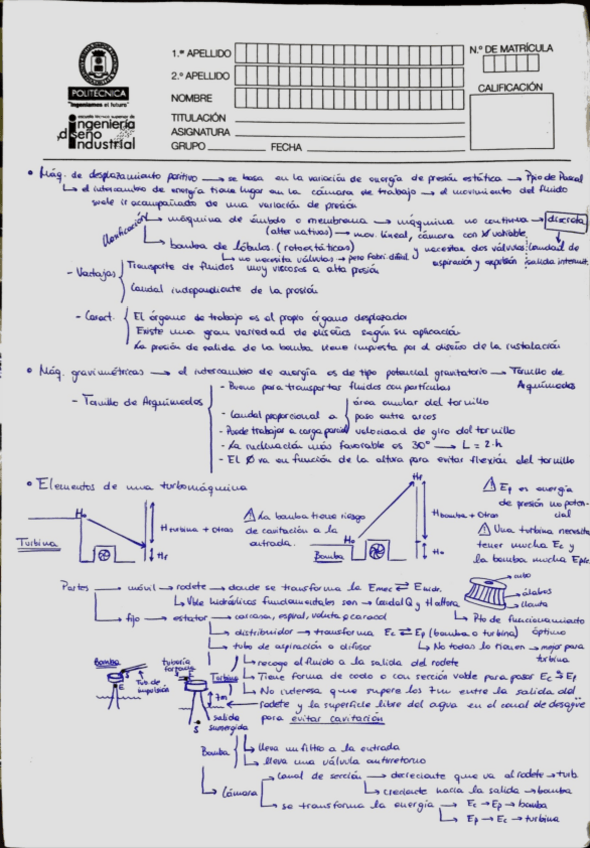 1.er APELLIDO
N.º DE MATRÍCULA
2.º APELLIDO
NOMBRE
CALIFICACIÓN
POLITÉCNICA
"Ingeniamos el futuro"
TITULACIÓN
escuela técnica superior de
ingeniería
diseño
industrial
ASIGNATURA
GRUPO FECHA
• Máq. de desplazamiento positivo → se basa en la variación de energía de presión estática → Ppio de Pascal
↳ el intercambio de energía tiene lugar en la cámara de trabajo → el movimiento del fluido
suele ir acompañado de una variación de presión
Clasificación → máquina de émbolo o membrana → máquina no continua → discreta
(alternativos) → mov. lineal, cámara con variable
↳ bomba de lóbulos (rotoestáticas) y necesitan dos válvulas: caudal de
↳ no necesita válvulas → pero fabri. difícil aspiración y expulsión salida intermit.
- Ventajas Transporte de fluidos muy viscosos a alta presión
Caudal independiente de la presión
- Caract. El órgano de trabajo es el propio órgano desplazador
Existe una gran variedad de diseños según su aplicación
La presión de salida de la bomba viene impuesta por el diseño de la instalación
• Máq. gravimétricas → el intercambio de energía es de tipo potencial gravitatorio → Tornillo de
Arquímedes
- Tornillo de Arquímedes
- Bueno para transportar fluidos con partículas
- Caudal proporcional a área anular del tornillo
paso entre arcos
velocidad de giro del tornillo
- Puede trabajar a carga parcial
- La inclinación más favorable es 30° → L = 2·h
- El Ø va en función de la altura para evitar flexión del tornillo
• Elementos de una turbomáquina
Turbina Ho H turbina + Otras Hf
⚠ La bomba tiene riesgo
de cavitación a la
entrada.
Bomba Ho Hf H bomba + Otras Ho
⚠ Ep es energía
de presión no poten-
cial
⚠ Una turbina necesita
tener mucha Ec y
la bomba mucha Epre.
Partes → móvil → rodete → donde se transforma la Emec ⇄ Ehidr.
cubo
álabes
llanta
↳ Vble hidráulicas fundamentales son → Caudal Q y H altura
↳ Pto de funcionamiento
óptimo
→ fijo → estator → carcasa, espiral, voluta o caracol
→ distribuidor → transforma Ec ⇄ Ep (bomba o turbina)
→ tubo de aspiración o difusor ↳ No todas lo tienen → mejor para
turbina
Bomba
E
Tub. de
impulsión
tubería
forzada
Turbina
E
7m
salida
sumergida
S
↳ recoge el fluido a la salida del rodete
↳ Tiene forma de codo o con sección vable para pasar Ec ⇆ Ep
↳ No interesa que supere los 7m entre la salida del
rodete y la superficie libre del agua en el canal de desagüe
para evitar cavitación
Bomba ↳ lleva un filtro a la entrada
↳ lleva una válvula antirretorno
↳ Cámara → canal de sección → decreciente que va al rodete → turb.
↳ creciente hacia la salida → bomba
→ se transforma la energía → Ec → Ep → bomba
↳ Ep → Ec → turbina